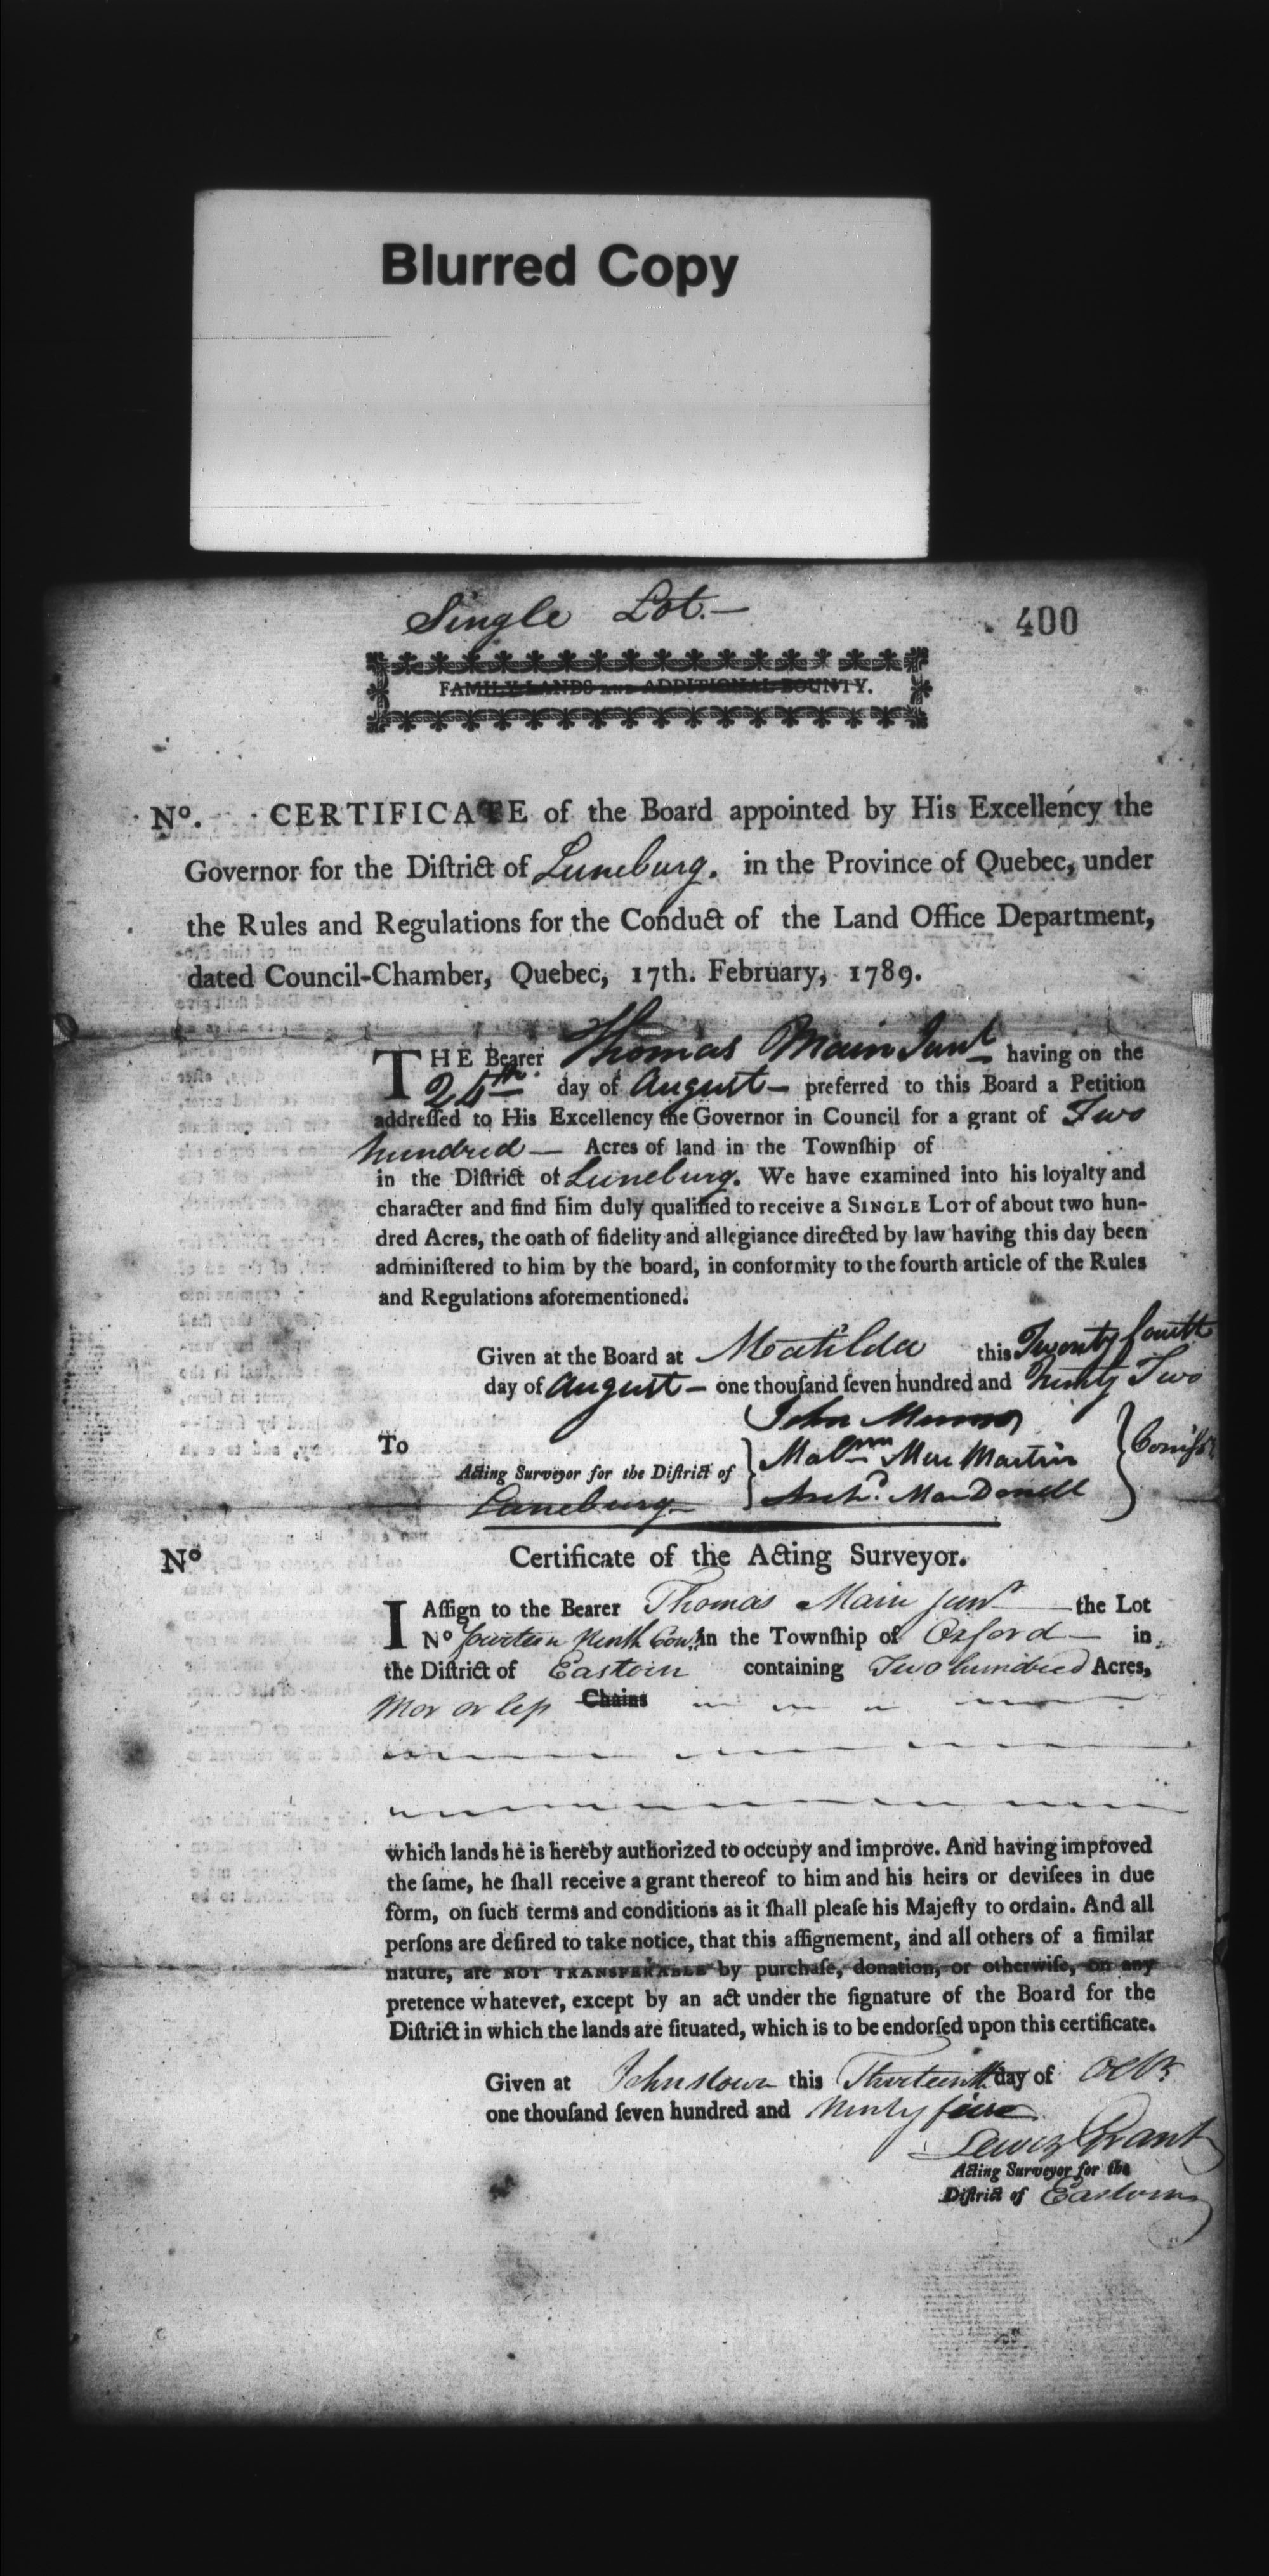 Blurred Copy
Single Lot.—
400
FAMILY LANDS AND ADDITIONAL BOUNTY.
No. CERTIFICATE of the Board appointed by His Excellency the
Governor for the Diſtrict of Luneburg. in the Province of Quebec, under
the Rules and Regulations for the Conduct of the Land Office Department,
dated Council-Chamber, Quebec, 17th. February, 1789.
THE Bearer Thomas Main Junr having on the
24th day of August — preferred to this Board a Petition
addreſſed to His Excellency the Governor in Council for a grant of Two
hundred — Acres of land in the Townſhip of
in the Diſtrict of Luneburg. We have examined into his loyalty and
character and find him duly qualified to receive a SINGLE LOT of about two hun-
dred Acres, the oath of fidelity and allegiance directed by law having this day been
adminiſtered to him by the board, in conformity to the fourth article of the Rules
and Regulations aforementioned.
Given at the Board at Matilda this Twenty fourth
day of August — one thouſand ſeven hundred and Ninty Two
John Munro
To
Malm Mc Martin
Acting Surveyor for the Diſtrict of
Luneburg
Archd. MacDonell
No Certificate of the Acting Surveyor.
I Aſſign to the Bearer Thomas Main Junr — the Lot
No fourteen Ninth Con. in the Townſhip of Oxford — in
the Diſtrict of Eastern containing Two hundred Acres,
Mor or leſs Chains
which lands he is hereby authorized to occupy and improve. And having improved
the ſame, he ſhall receive a grant thereof to him and his heirs or deviſees in due
form, on ſuch terms and conditions as it ſhall pleaſe his Majeſty to ordain. And all
perſons are deſired to take notice, that this aſſignement, and all others of a ſimilar
nature, are NOT TRANSFERABLE by purchaſe, donation, or otherwiſe, on any
pretence whatever, except by an act under the ſignature of the Board for the
Diſtrict in which the lands are ſituated, which is to be endorſed upon this certificate.
Given at Johnstown this Thirteenth day of Octr
one thouſand ſeven hundred and Ninty
Lewis Grant
Acting Surveyor for the
Diſtrict of Eastern